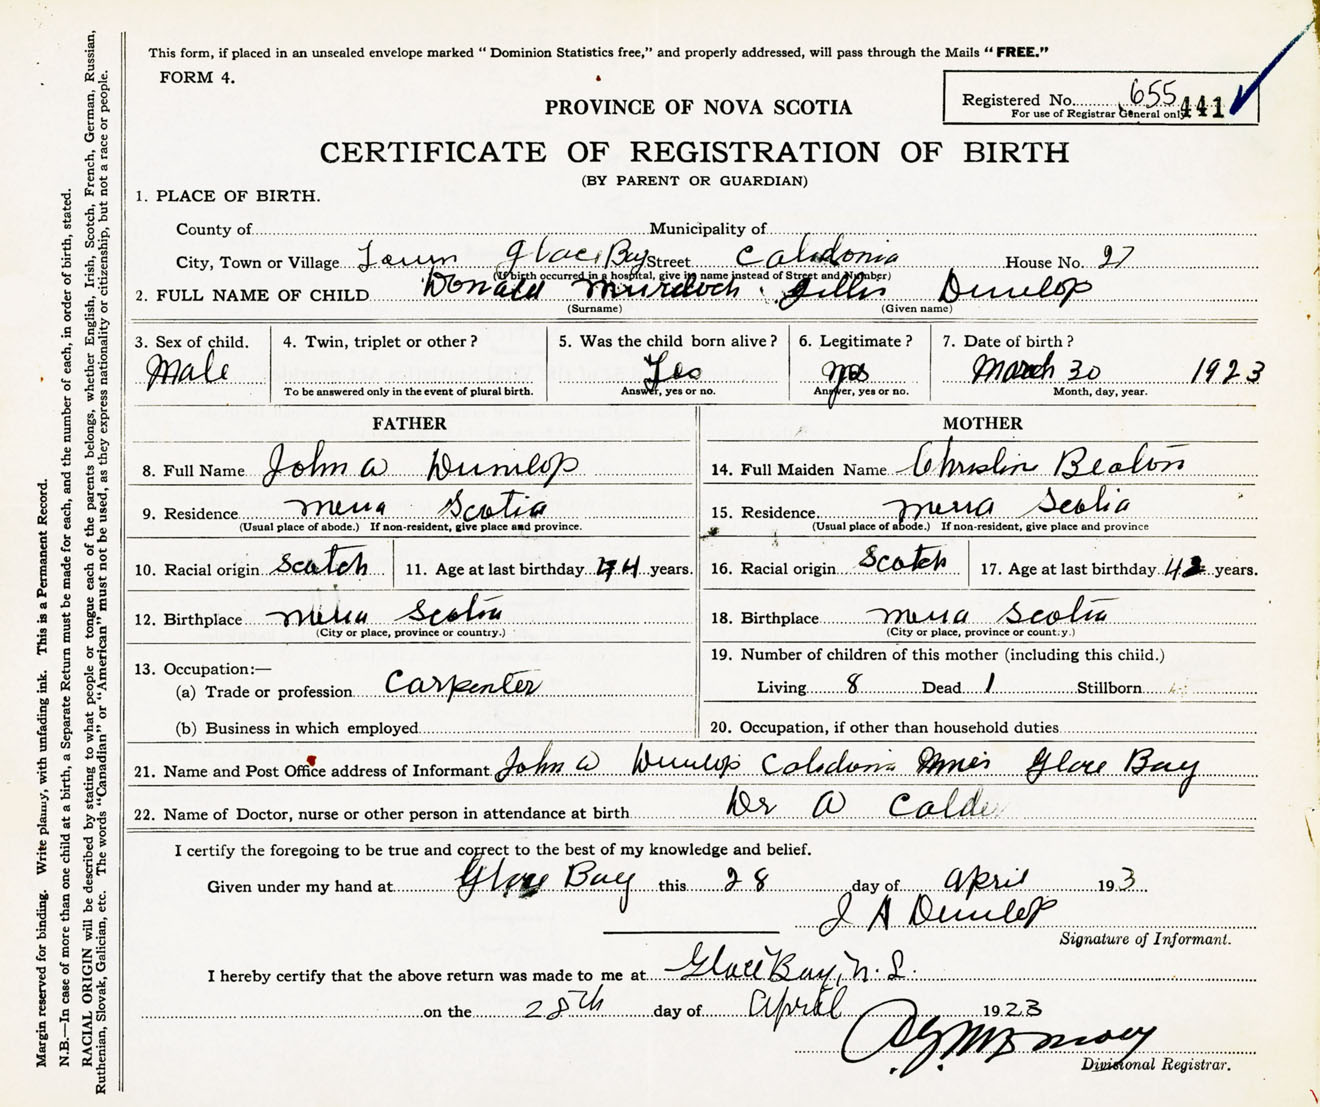 This form, if placed in an unsealed envelope marked "Dominion Statistics free," and properly addressed, will pass through the Mails "FREE."
FORM 4.
Registered No. 655 441
For use of Registrar General only
PROVINCE OF NOVA SCOTIA
CERTIFICATE OF REGISTRATION OF BIRTH
(BY PARENT OR GUARDIAN)
1. PLACE OF BIRTH.
County of Municipality of
City, Town or Village Town Glace Bay Street Caledonia House No. 27
(If birth occurred in a hospital, give its name instead of Street and Number)
2. FULL NAME OF CHILD Donald Murdoch Gillis Dunlop
(Surname) (Given name)
3. Sex of child. 4. Twin, triplet or other? 5. Was the child born alive? 6. Legitimate? 7. Date of birth?
Male Yes March 30 1923
To be answered only in the event of plural birth. Answer, yes or no. Answer, yes or no. Month, day, year.
FATHER MOTHER
8. Full Name John A Dunlop 14. Full Maiden Name Beaton
9. Residence Scotia 15. Residence. Scotia
(Usual place of abode.) If non-resident, give place and province. (Usual place of abode.) If non-resident, give place and province
10. Racial origin Scotch 11. Age at last birthday 44 years. 16. Racial origin Scotch 17. Age at last birthday 42 years.
12. Birthplace Scotia 18. Birthplace Scotia
(City or place, province or country.) (City or place, province or country.)
13. Occupation:— 19. Number of children of this mother (including this child.)
(a) Trade or profession Carpenter Living 8 Dead 1 Stillborn
(b) Business in which employed 20. Occupation, if other than household duties
21. Name and Post Office address of Informant John A Dunlop Caledonia Mines Glace Bay
22. Name of Doctor, nurse or other person in attendance at birth Dr A Calder
I certify the foregoing to be true and correct to the best of my knowledge and belief.
Given under my hand at Glace Bay this 28 day of April 193
J A Dunlop
Signature of Informant.
I hereby certify that the above return was made to me at Glace Bay, N. S.
on the 28th day of April 1923
Divisional Registrar.
Margin reserved for binding. Write plainly, with unfading ink. This is a Permanent Record.
N.B.—In case of more than one child at a birth, a Separate Return must be made for each, and the number of each, in order of birth, stated.
RACIAL ORIGIN will be described by stating to what people or tongue each of the parents belongs, whether English, Irish, Scotch, French, German, Russian,
Ruthenian, Slovak, Galician, etc. The words "Canadian" or "American" must not be used, as they express nationality or citizenship, but not a race or people.